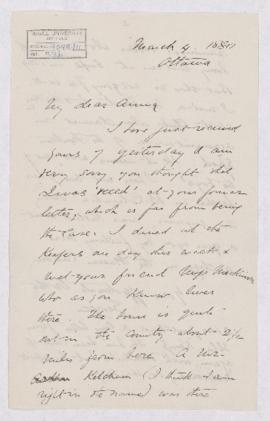 March 4
Ottawa
My dear Anna
I have just received
yours of yesterday & am
very sorry you thought that
I was at your former
letter, which is far from being
the case. I dined at the
Keefers one day this week &
met your friend Miss
who as you know lives
there. The house is quite
out in the Country about 2 1/2
miles from here. A Mr.
Ketchum (I think I am
right in the name) was there